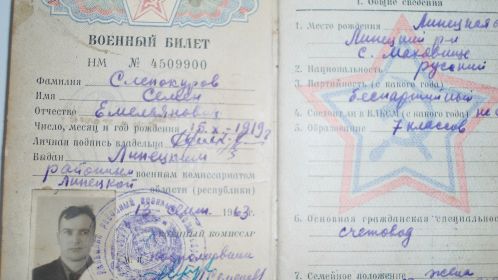 ВОЕННЫЙ БИЛЕТ
НМ № 4509900
Фамилия Слепокуров
Имя Семен
Отчество Емельянович
Число, месяц и год рождения 15.XI.1919г
Личная подпись владельца
Выдан Липецким
районным военным комиссариатом
Липецкой области (республики)
1963г.
ВОЕННЫЙ КОМИССАР
подполковник
I. Общие сведения
1. Место рождения Липецкая
Липецкий р-н
2. Национальность русский
3. Партийность (с какого года)
беспартийный
4. Состоит ли в ВЛКСМ (с какого года) не
5. Образование 7 классов
6. Основная гражданская специальнос
счетовод
7. Семейное положение жена